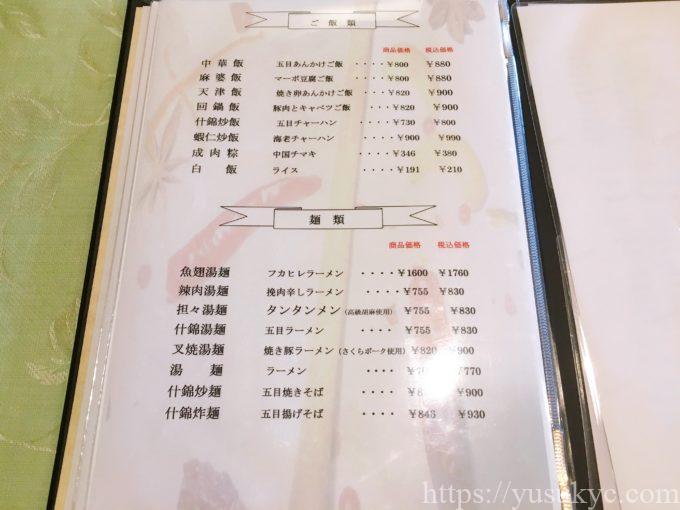 ご飯類
商品価格 税込価格
中華飯 五目あんかけご飯 ・・・・￥800 ￥880
麻婆飯 マーボ豆腐ご飯 ・・・・￥800 ￥880
天津飯 焼き卵あんかけご飯 ・・・￥820 ￥900
回鍋飯 豚肉とキャベツご飯 ・・・￥820 ￥900
什錦炒飯 五目チャーハン ・・・・￥730 ￥800
蝦仁炒飯 海老チャーハン ・・・・￥900 ￥990
成肉粽 中国チマキ ・・・・￥346 ￥380
白飯 ライス ・・・・￥191 ￥210
麺類
商品価格 税込価格
魚翅湯麺 フカヒレラーメン ・・・・￥1600 ￥1760
辣肉湯麺 挽肉辛しラーメン ・・・・￥755 ￥830
担々湯麺 タンタンメン(高級胡麻使用) ￥755 ￥830
什錦湯麺 五目ラーメン ・・・・ ￥755 ￥830
叉焼湯麺 焼き豚ラーメン(さくらポーク使用) ￥820 ￥900
湯麺 ラーメン ・・・・ ￥770
什錦炒麺 五目焼きそば ・・・・ ￥900
什錦炸麺 五目揚げそば ・・・・ ￥846 ￥930
https://yusukyc.com